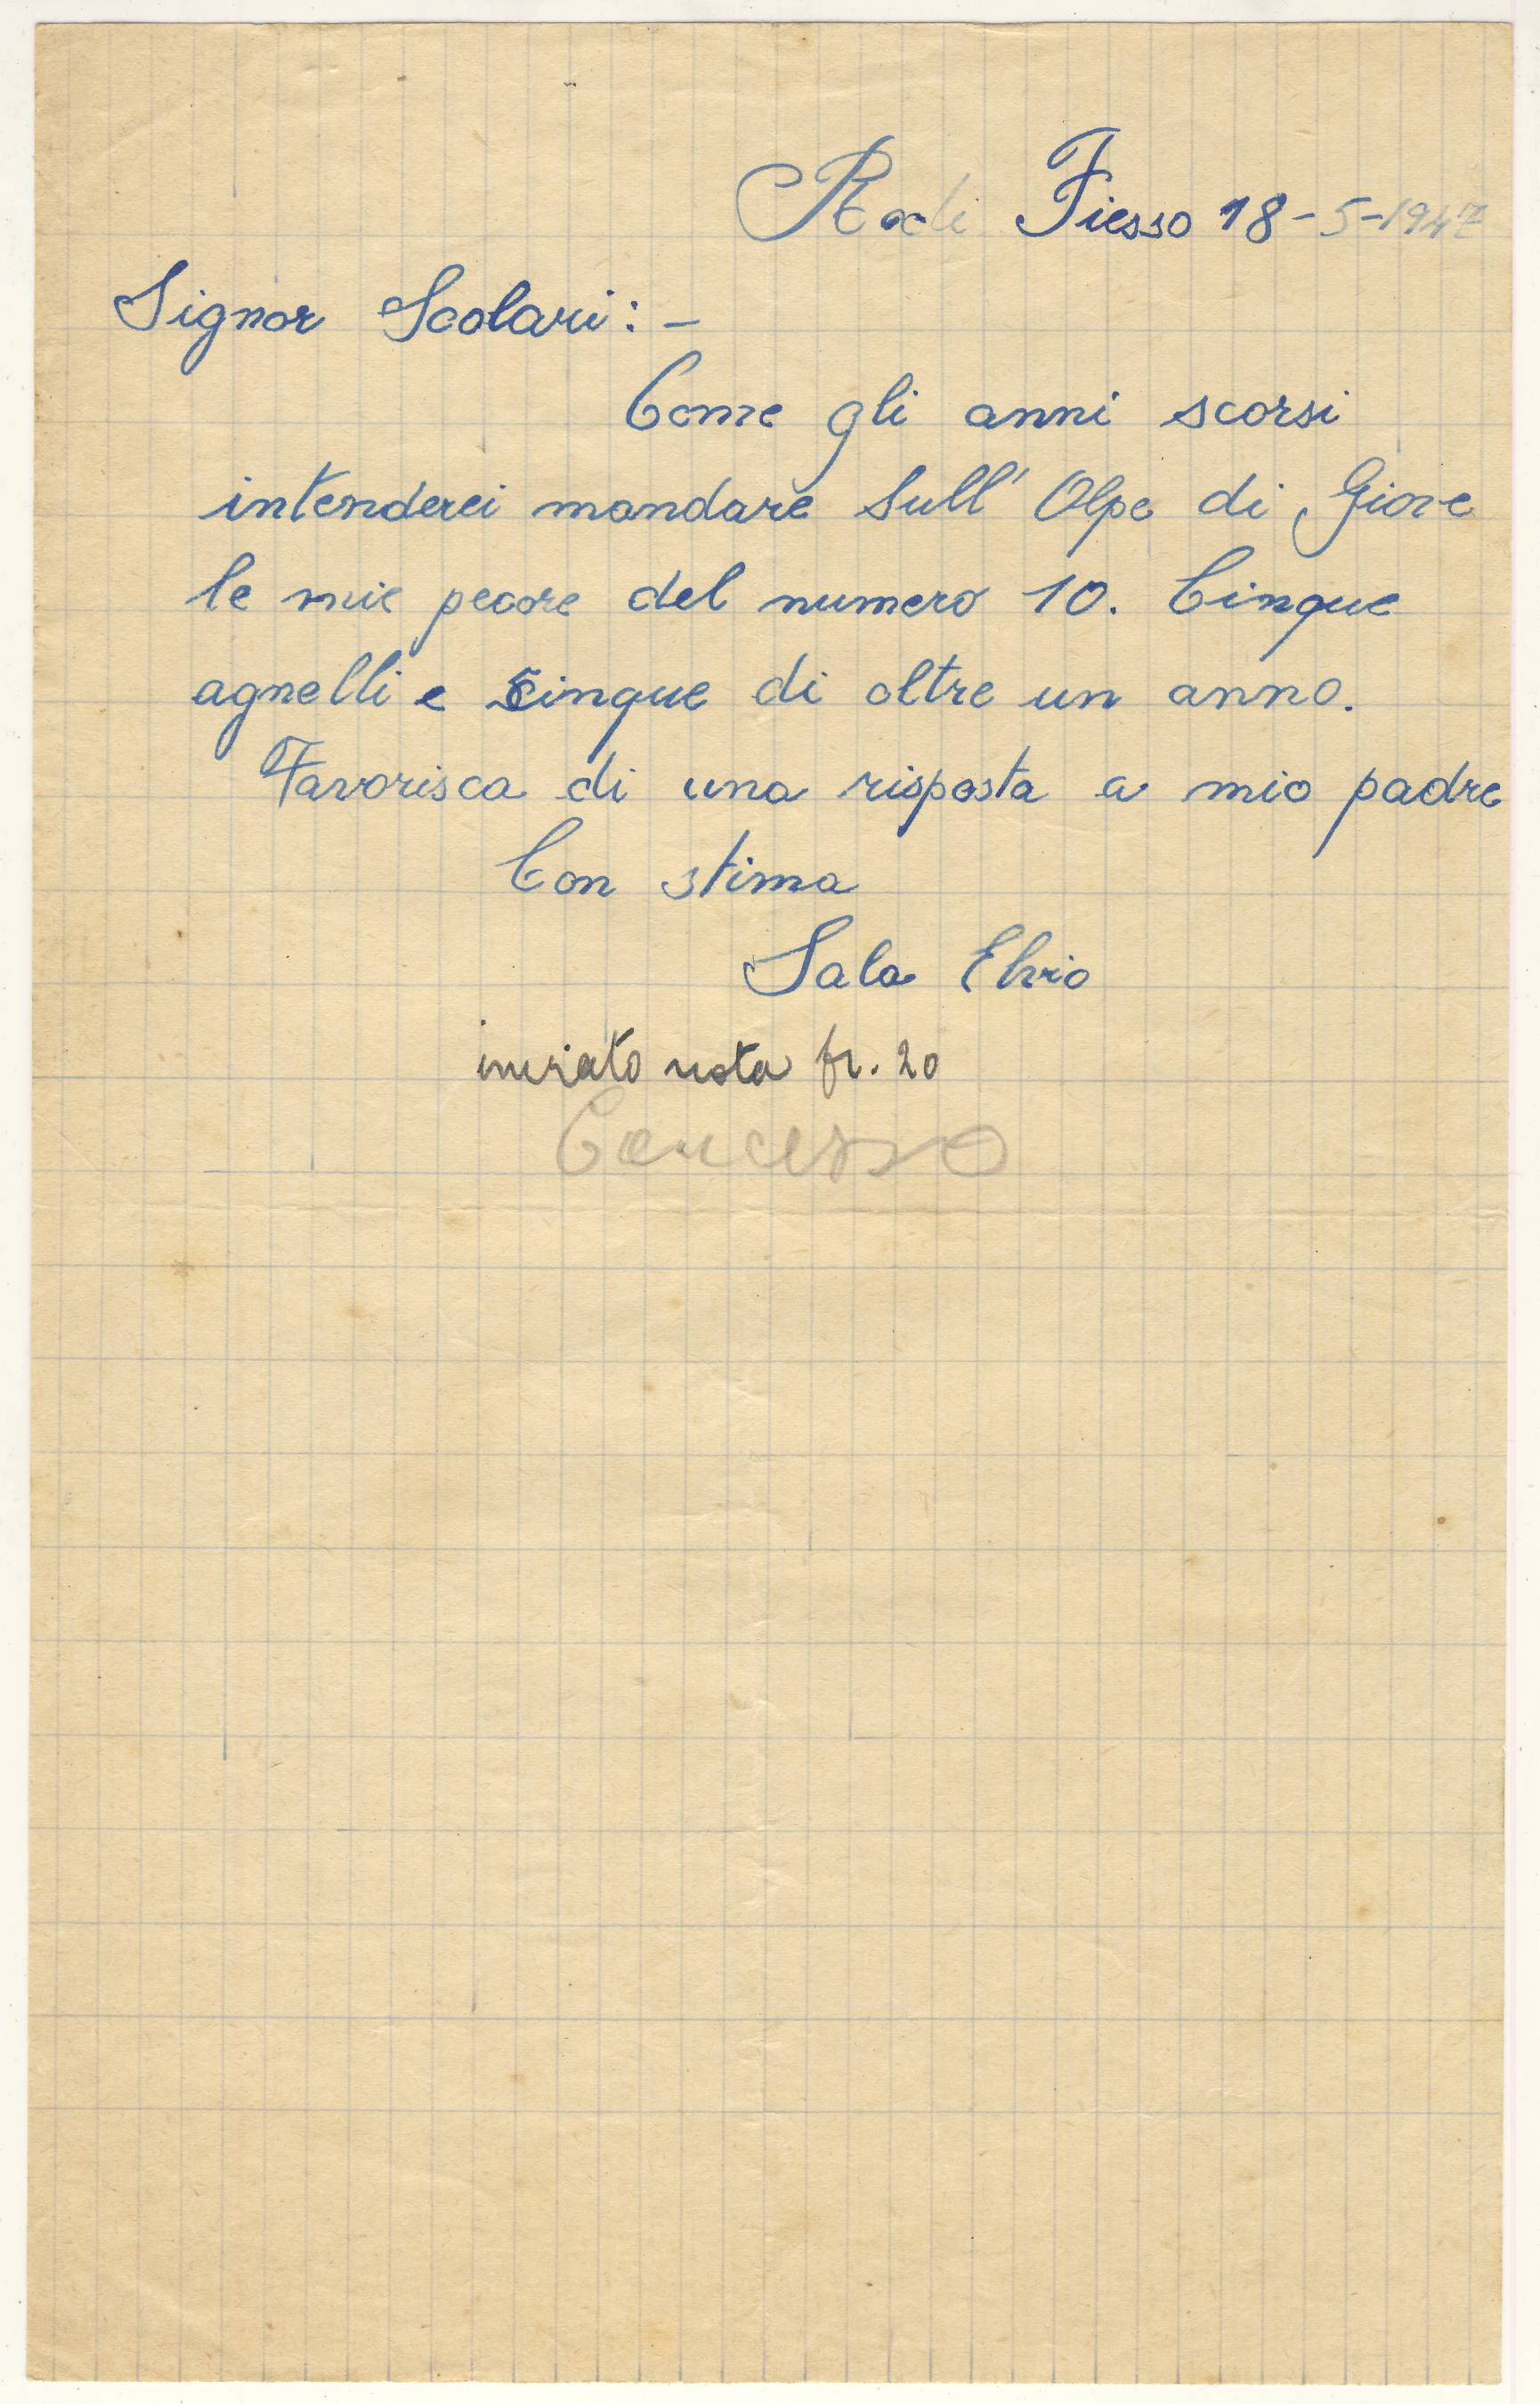 Rodi Fiesso 18-5-1947
Signor Scolari: -
Come gli anni scorsi
intenderei mandare sull' Alpe di Giove
le mie pecore del numero 10. Cinque
agnelli e cinque di oltre un anno.
Favorisca di una risposta a mio padre
Con stima
Sala Elvio
inviato nota fr. 20
Concesso